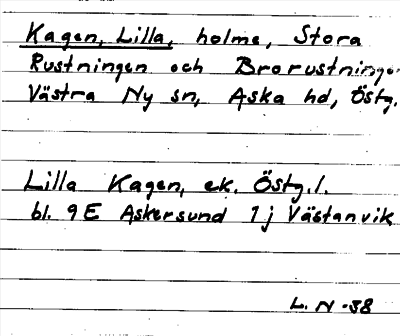 Kagen, Lilla, holme, Stora
Rustningen och Brorustningen
Västra Ny sn, Aska hd, Östg.
Lilla Kagen, ek. Östg. l.
bl. 9E Askersund 1j Västanvik
L. N -38